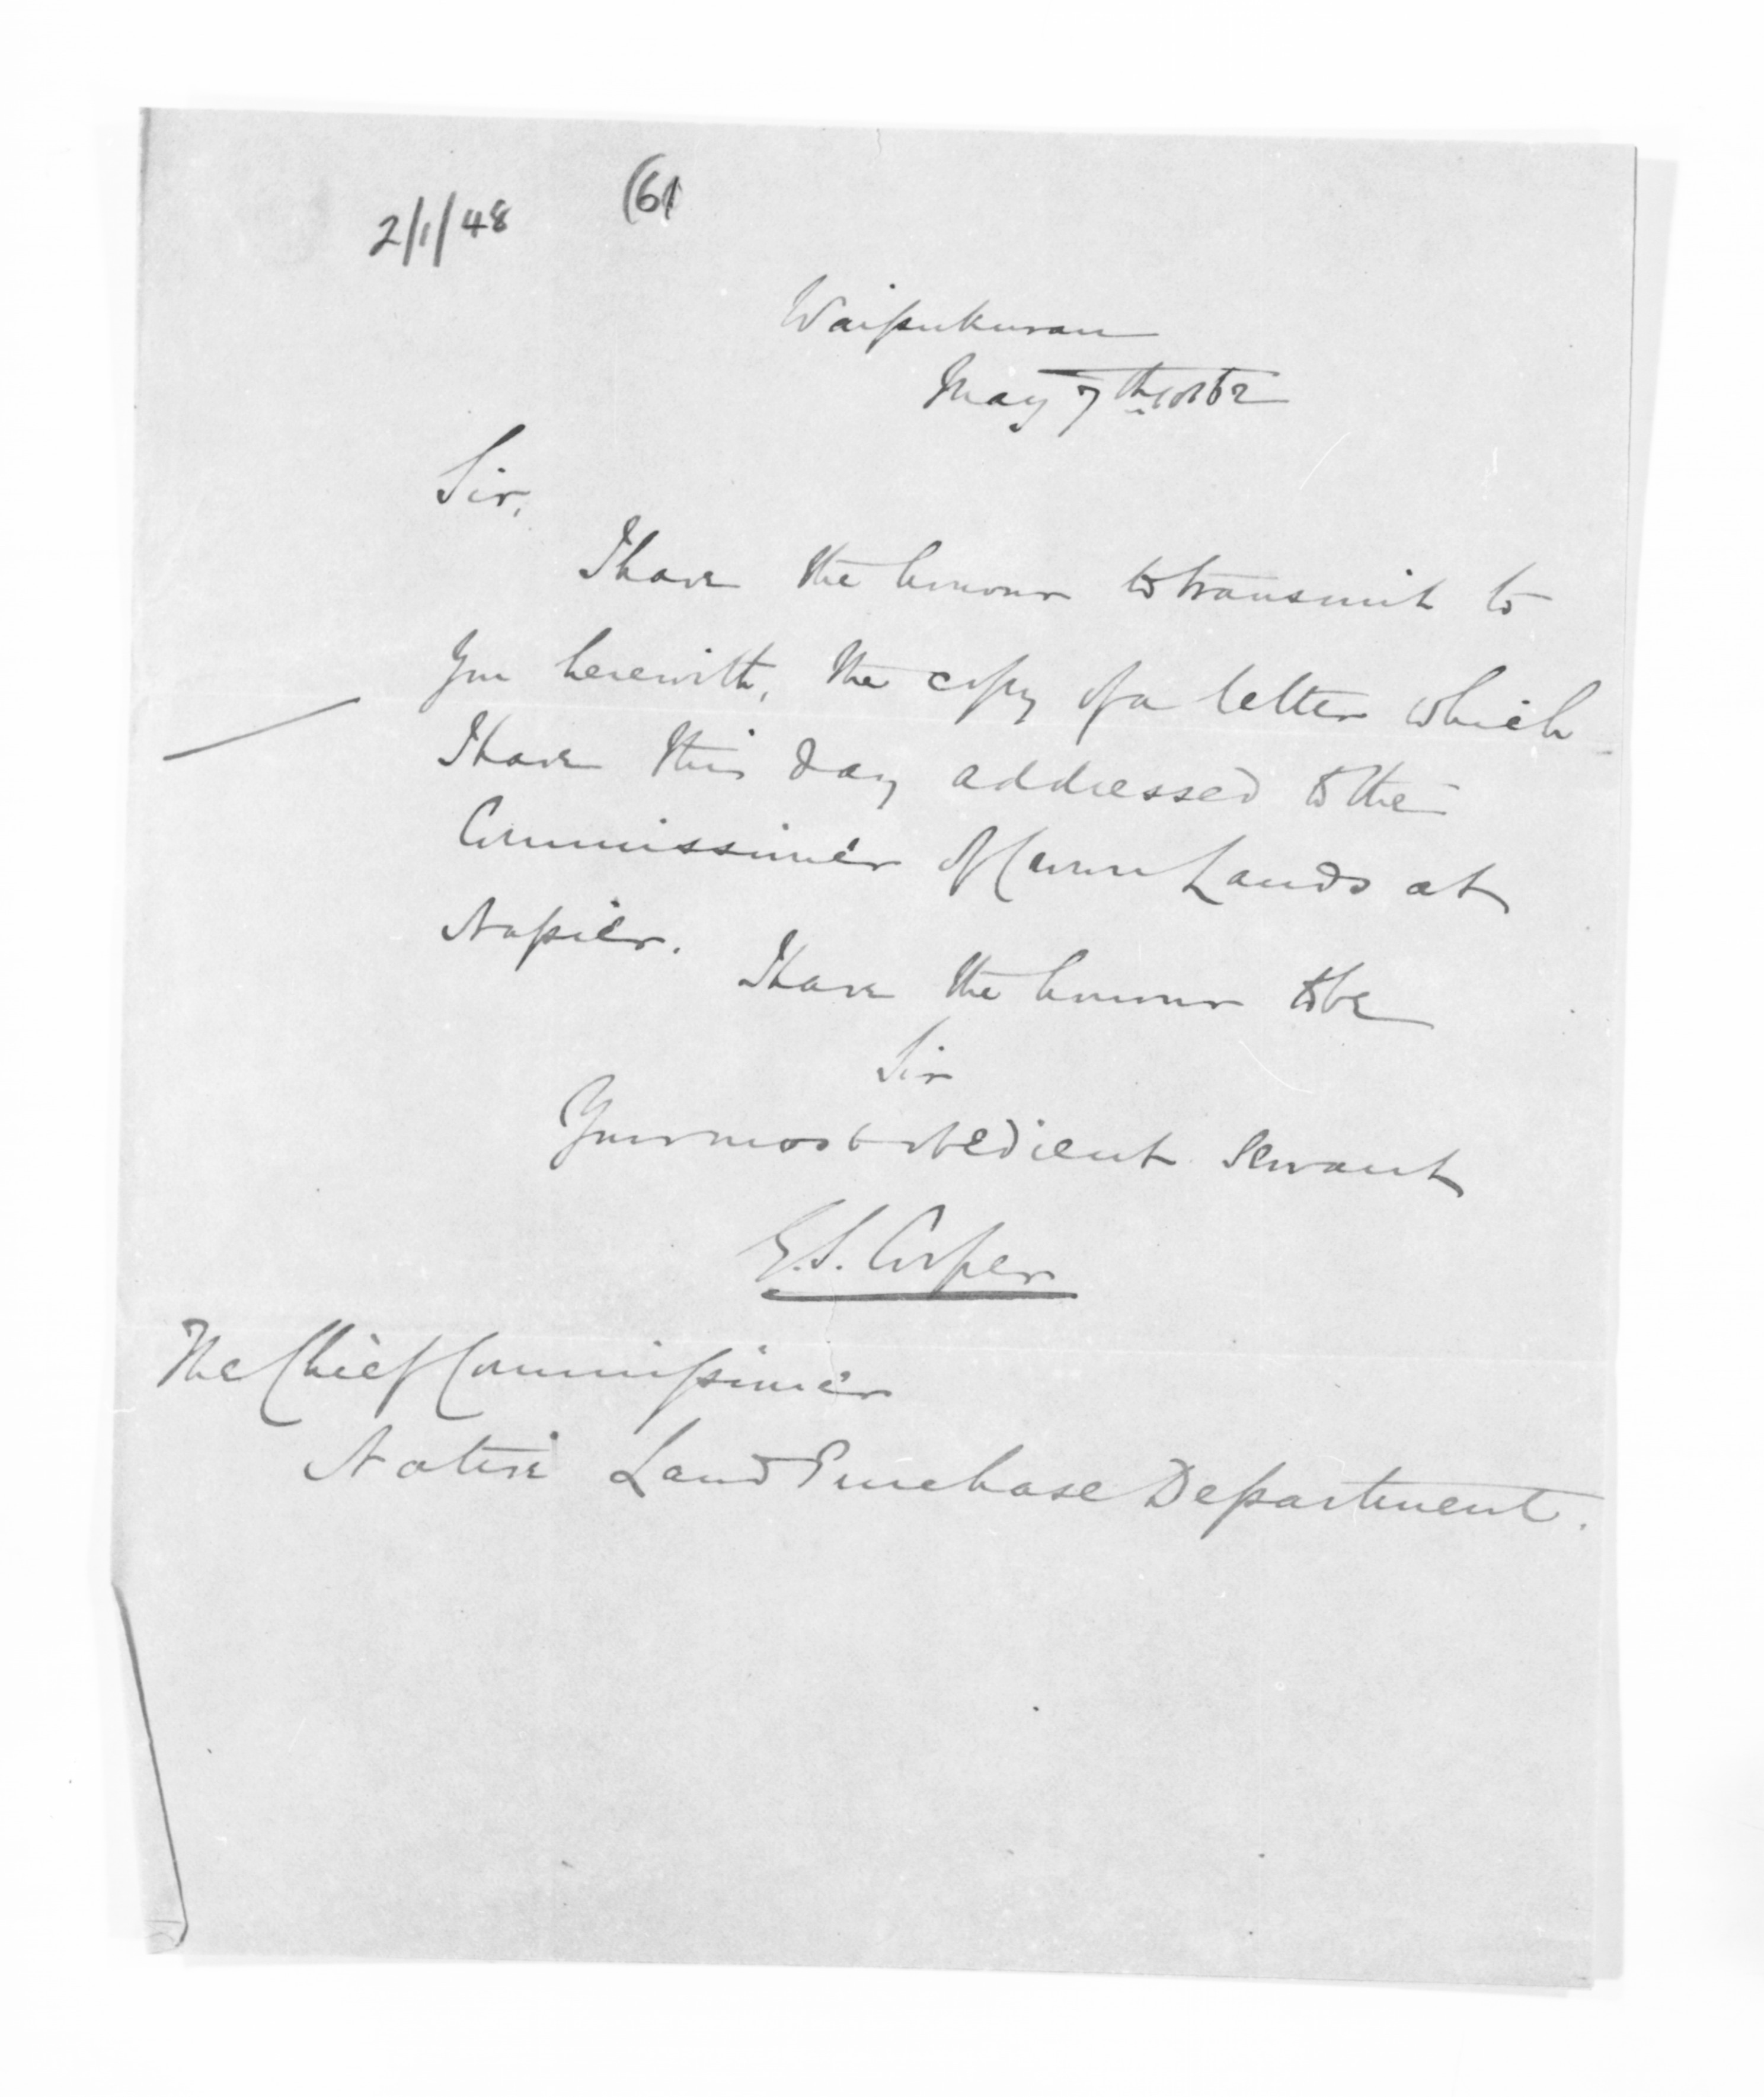 2/1/48 (61
Waipukurau
May 7th 1862
Sir,
I have the honour to transmit to
you herewith, the copy of a letter which
I have this day addressed to the
Commissioner of Crown Lands at
Napier.
I have the honour to be
Sir
Your most obedient servant
G.S. Cooper
The Chief Commissioner
Native Land Purchase Department.